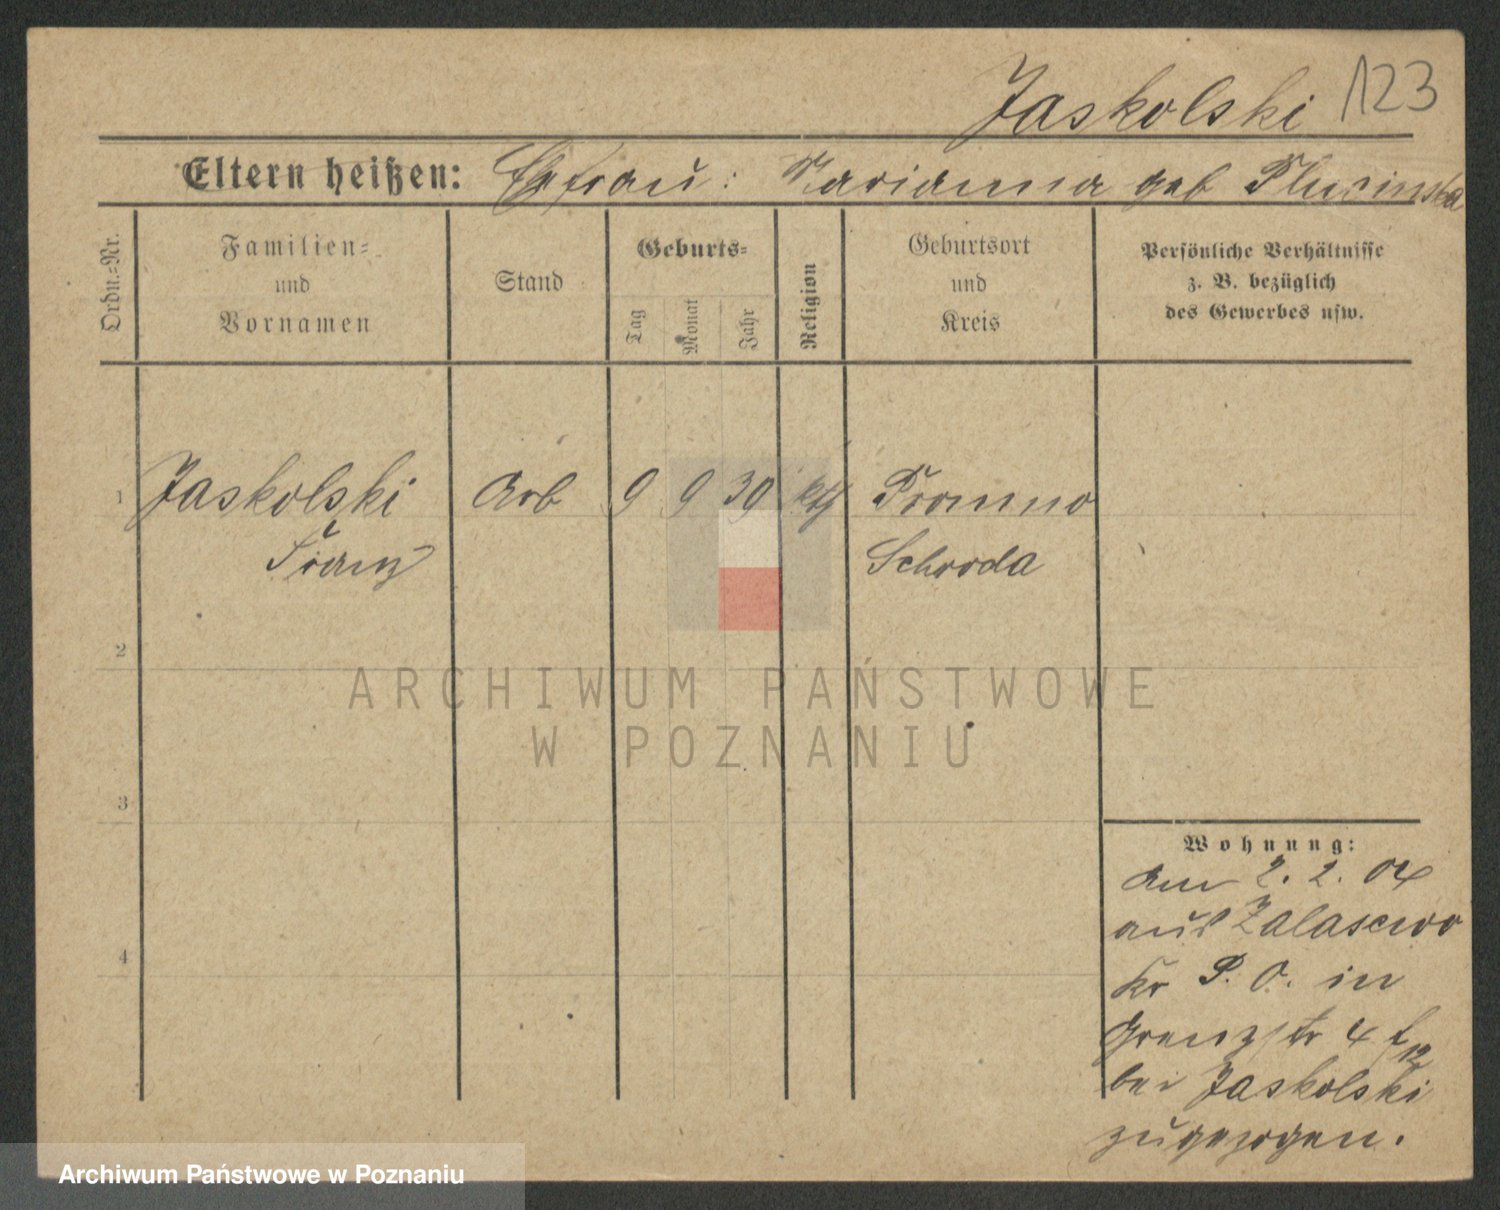 Jaskolski 123
Eltern heißen: Ehefrau: Marianna geb Plucinska
Ordn.=Nr.
Familien=
und
Vornamen
Stand
Geburts=
Tag
Monat
Jahr
Religion
Geburtsort
und
Kreis
Persönliche Verhältnisse
z. B. bezüglich
des Gewerbes usw.
1 Jaskolski Arb 9 9 39 kth Promno
Franz Schroda
2
ARCHIWUM PAŃSTWOWE
W POZNANIU
3
4
Wohnung:
Am 2. 2. 04
aus Zalasewo
Kr P. O. in
Grenzstr 4
bei Jaskolski
zugezogen.
Archiwum Państwowe w Poznaniu